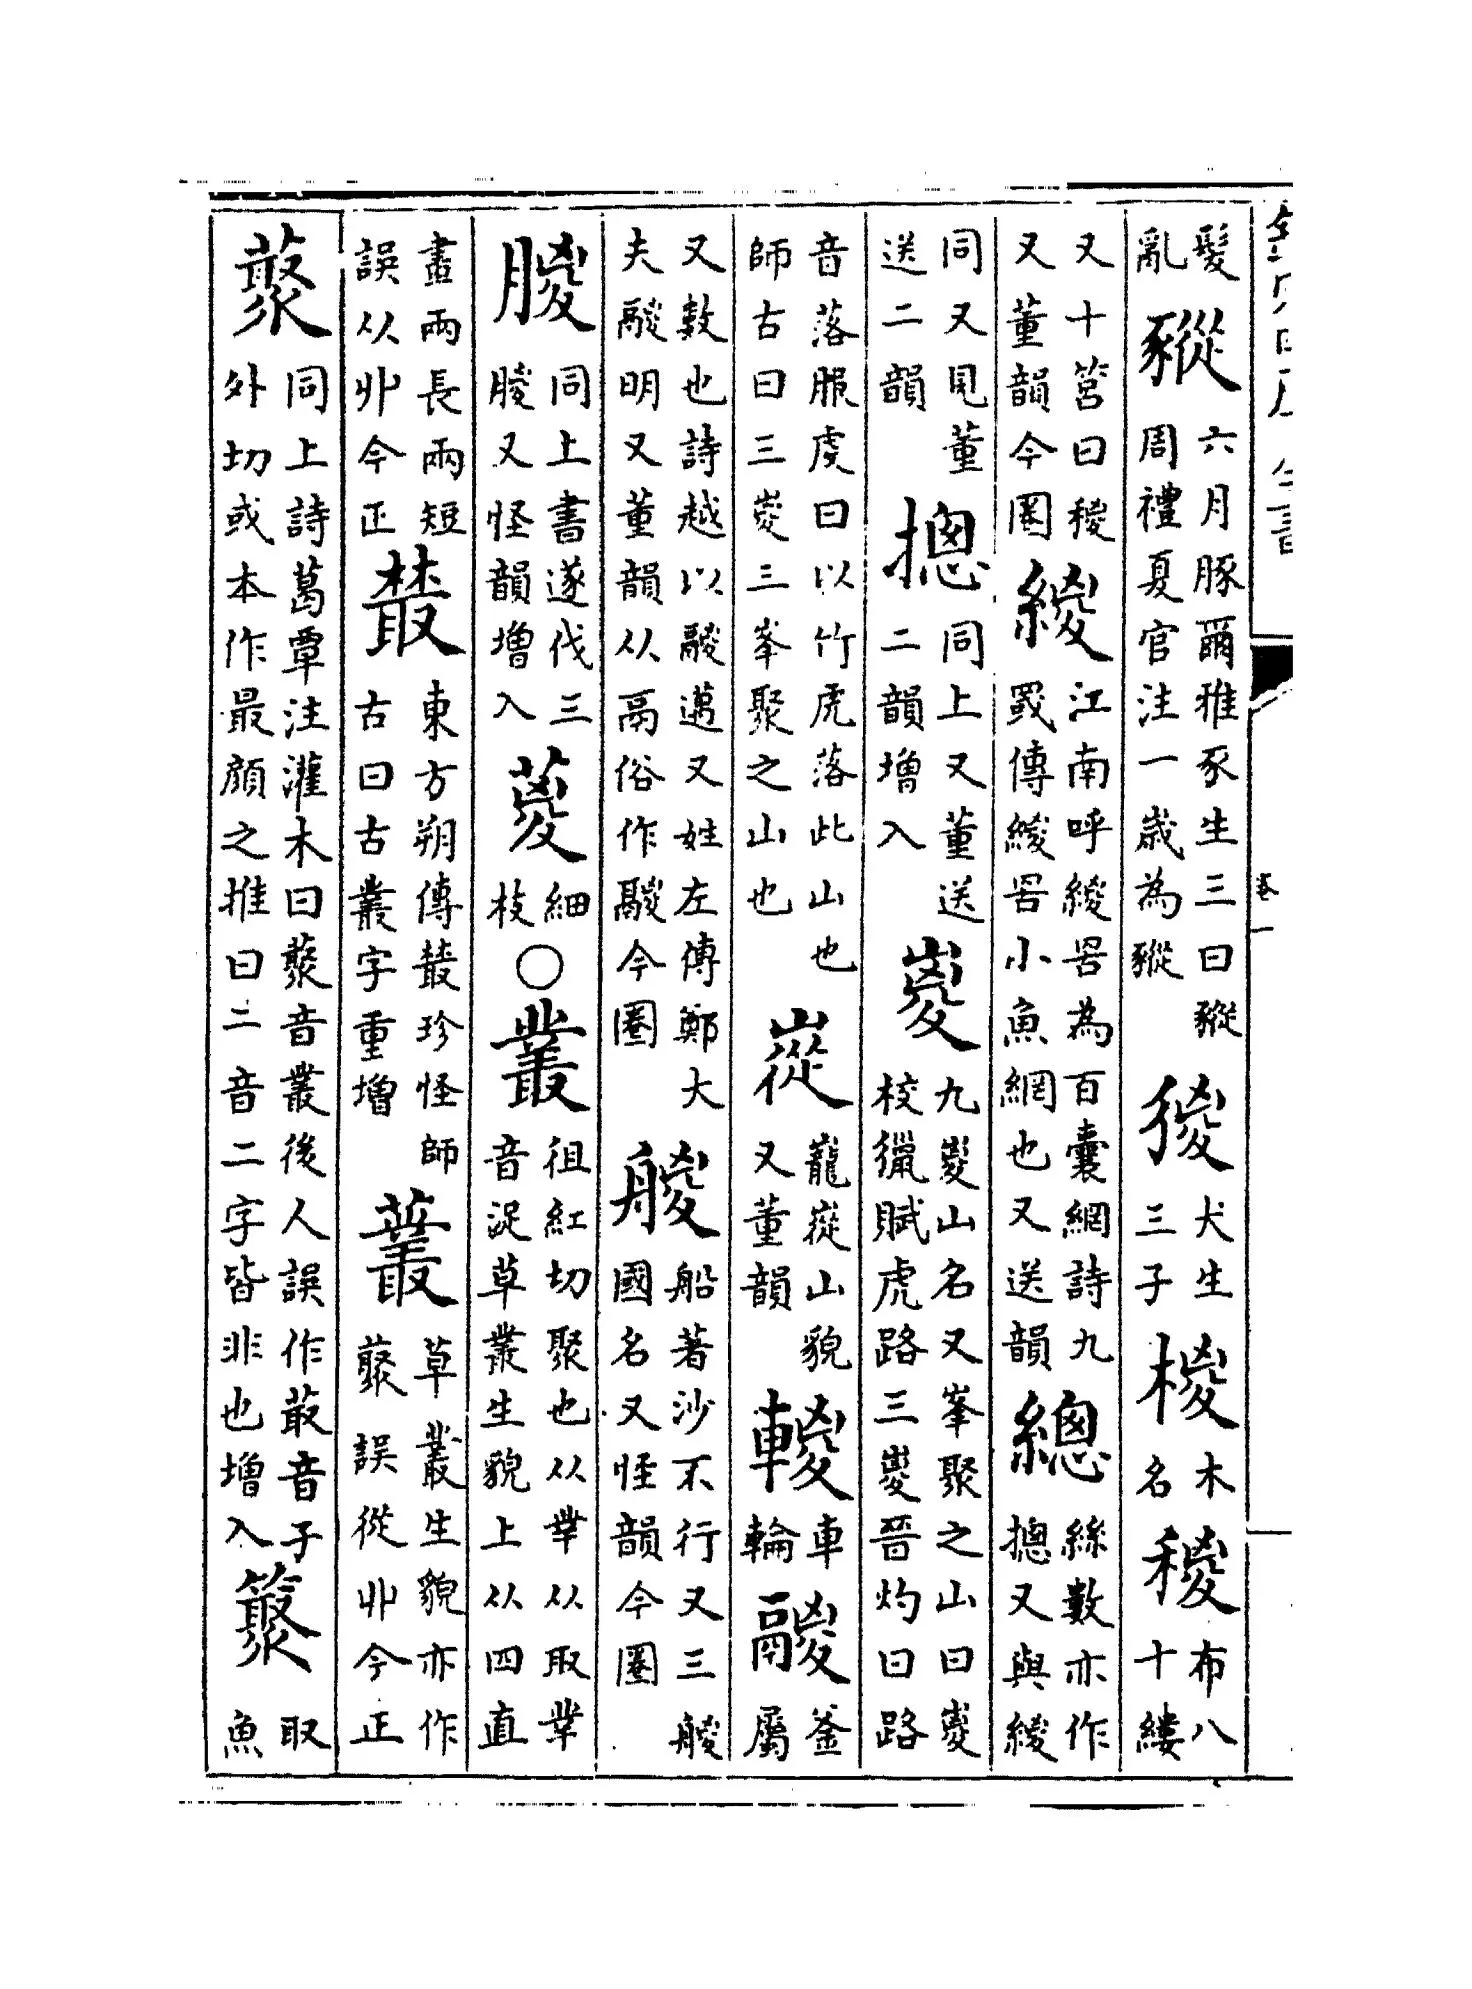 髮亂豵六月豚爾雅豕生三曰豵周禮夏官注一歲為豵猣犬生三子椶木名稯布八十縷
又十筥曰稯又董韻今圈緵江南呼緵罟為百囊網詩九罭傳緵罟小魚網也又送韻總絲數亦作摠又與緵
同又見董送二韻摠同上又董送二韻增入嵏九嵏山名又峯聚之山曰嵏校獵賦虎路三嵏晉灼曰路
音落服虔曰以竹虎落此山也師古曰三嵏三峯聚之山也嵷巃嵷山貌又董韻輚車輪鬷釜屬
又數也詩越以鬷邁又姓左傳鄭大夫鬷明又董韻从鬲俗作鬷今圈艐船著沙不行又三艐國名又怪韻今圈
朡同上書遂伐三朡又怪韻增入葼細枝○叢徂紅切聚也从丵从取丵音浞草叢生貌上从四直
盡兩長兩短誤从丱今正菆東方朔傳菆珍怪師古曰古叢字重增藂草叢生貌亦作藂誤從丱今正
藂同上詩葛覃注灌木曰藂音叢後人誤作菆音子外切或本作最顔之推曰二音二字皆非也增入篜取魚